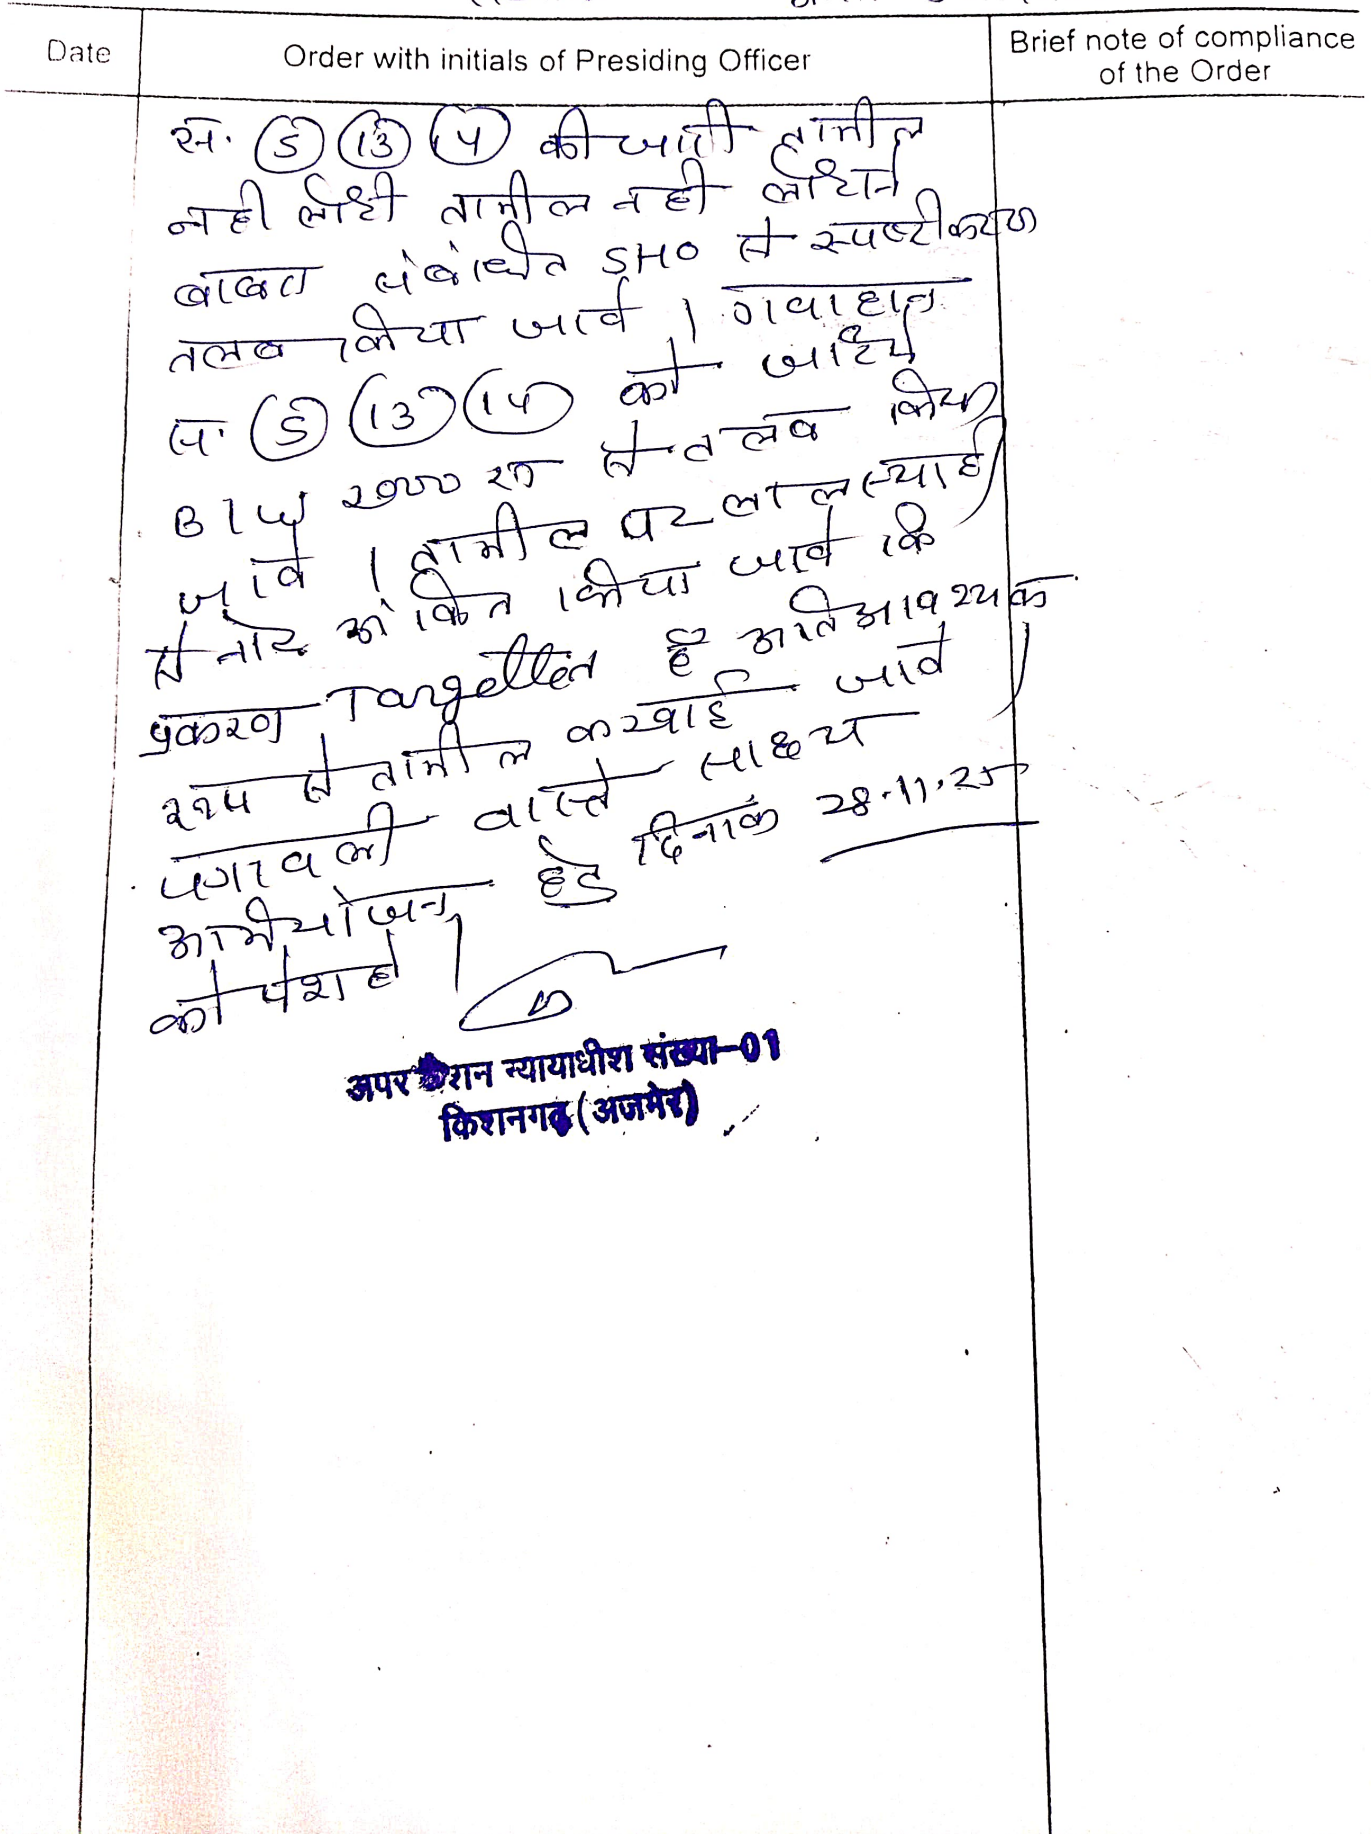 Date
Order with initials of Presiding Officer
Brief note of compliance
of the Order
स. (5) (13) (14) की जारी तामील
नही लौटी तामील नही लौटाने
बाबत संबंधित SHO से स्पष्टीकरण
तलब किया जावें । गवाहान
स. (5) (13) (14) को जरिये
B/W २००० रू से तलब किया
जावें । तामील पर लाल स्याही
से नोट अंकित किया जावें कि
प्रकरण Targetted है अतिआवश्यक
रूप से तामील करवाई जावें ।
पत्रावली वास्ते साक्ष्य
अभियोजन हेतु दिनांक 28.11.25
को पेश हो ।
अपर सेशन न्यायाधीश संख्या-01
किशनगढ़ (अजमेर)